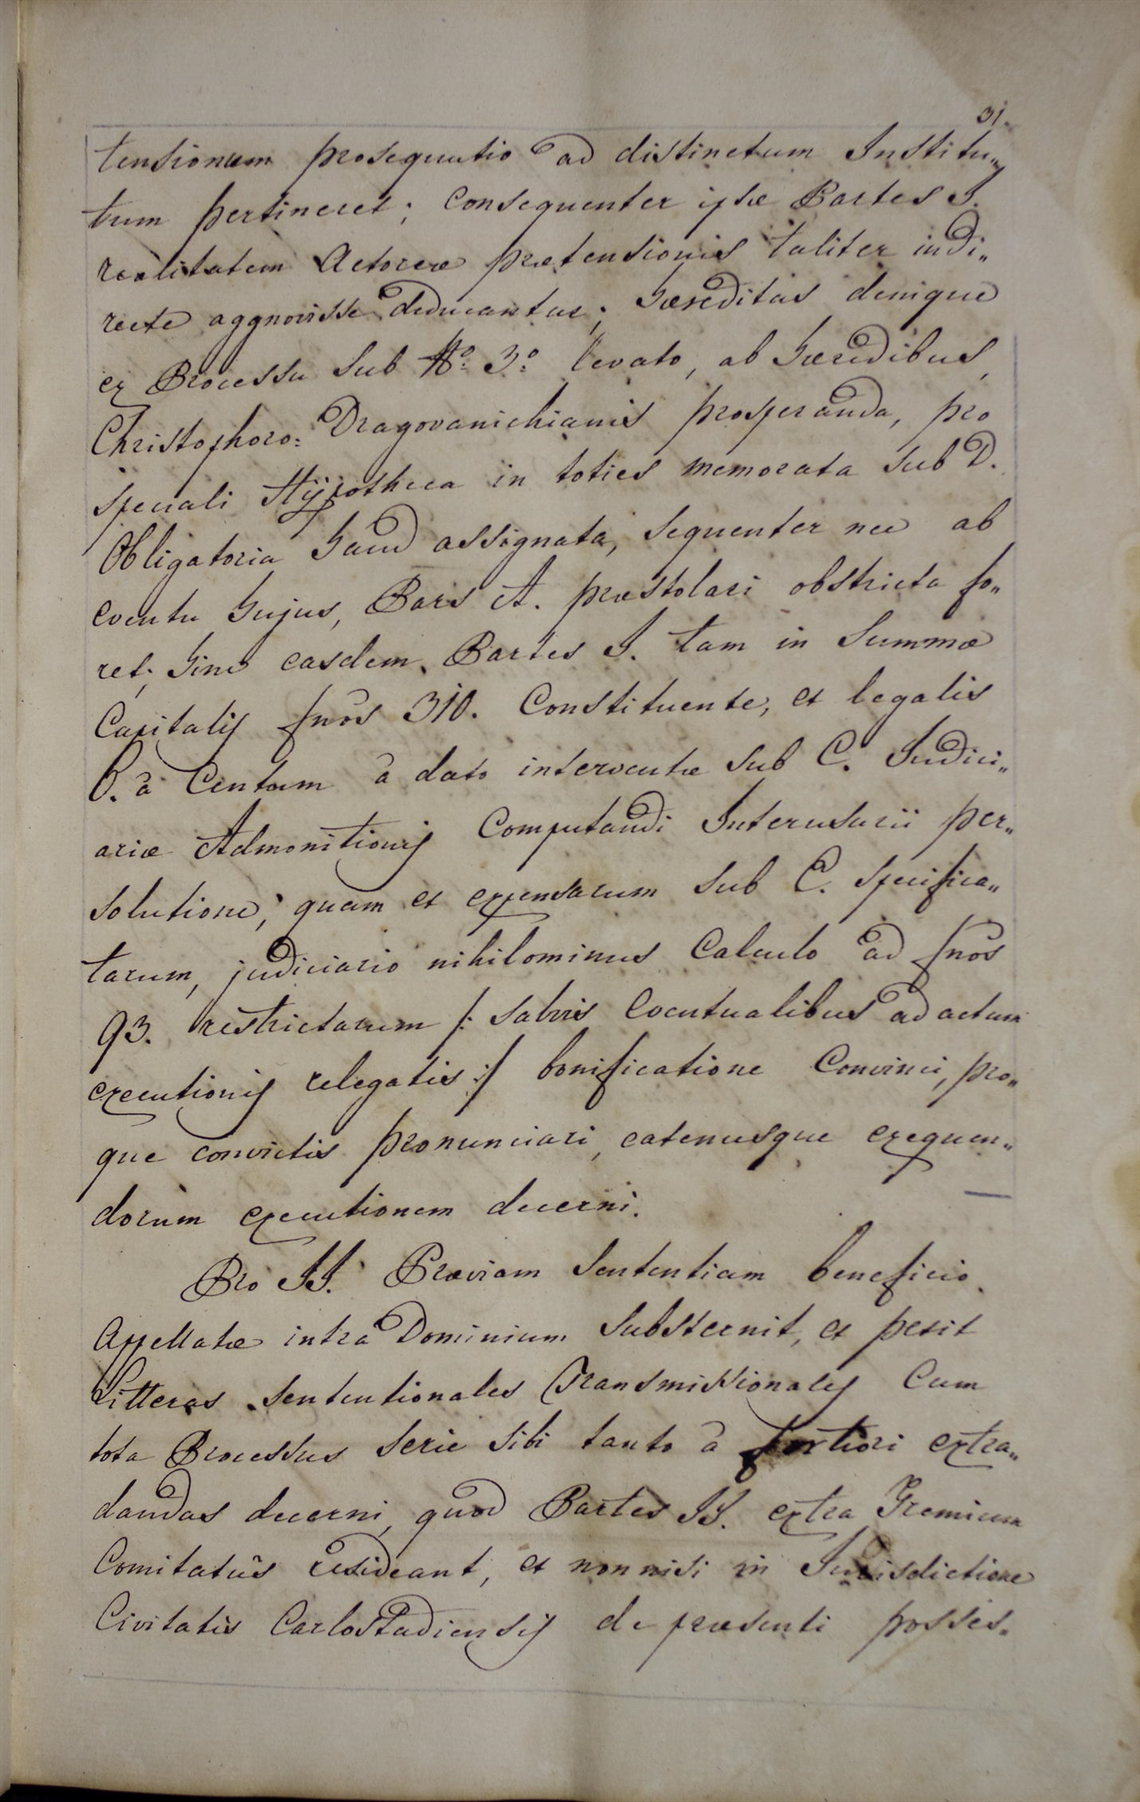 31.
tensionum prosequutio ad distinctum Institu„
tum pertineret; consequenter ipsæ Partes I.
realitatem Actoreæ prætensionis taliter indi„
recte aggnovisse deducantur; Hæreditas denique
ex Processu sub No. 3o. levato, ab Hæredibus
Christophoro= Dragovanichianis prosperanda, pro
speciali Hÿpotheca in toties memorata sub D.
Obligatoria haud assignata, sequenter nec ab
eventu hujus, Pars A. præstolari obstricta fo„
ret; hinc easdem Partes I. tam in Summæ
Capitalis fnos 310. Constituente, et legalis
6. à Centum à dato interventæ sub C. Judici„
ariæ Admonitionis Computandi Interusurii per„
solutione, quam et expensarum sub E. specifica„
tarum, judiciario nihilominus Calculo ad fnos
93. restrictarum /: salvis eventualibus ad actum
executionis relegatis :/ bonificatione Convinci, pro„
que convictis pronunciari, eatenusque exequen„
dorum executionem decerni.
Pro II. Præviam Sententiam beneficio
Appellatæ intra Dominium Substernit, et petit
Litteras Sententionales Transmissionales Cum
tota Processus Serie sibi tanto à fortiori extra„
dandas decerni, quod Partes II. extra Gremium
Comitatûs resideant, et nonnisi in Jurisdictione
Civitatis Carlostadiensis de præsenti posses„